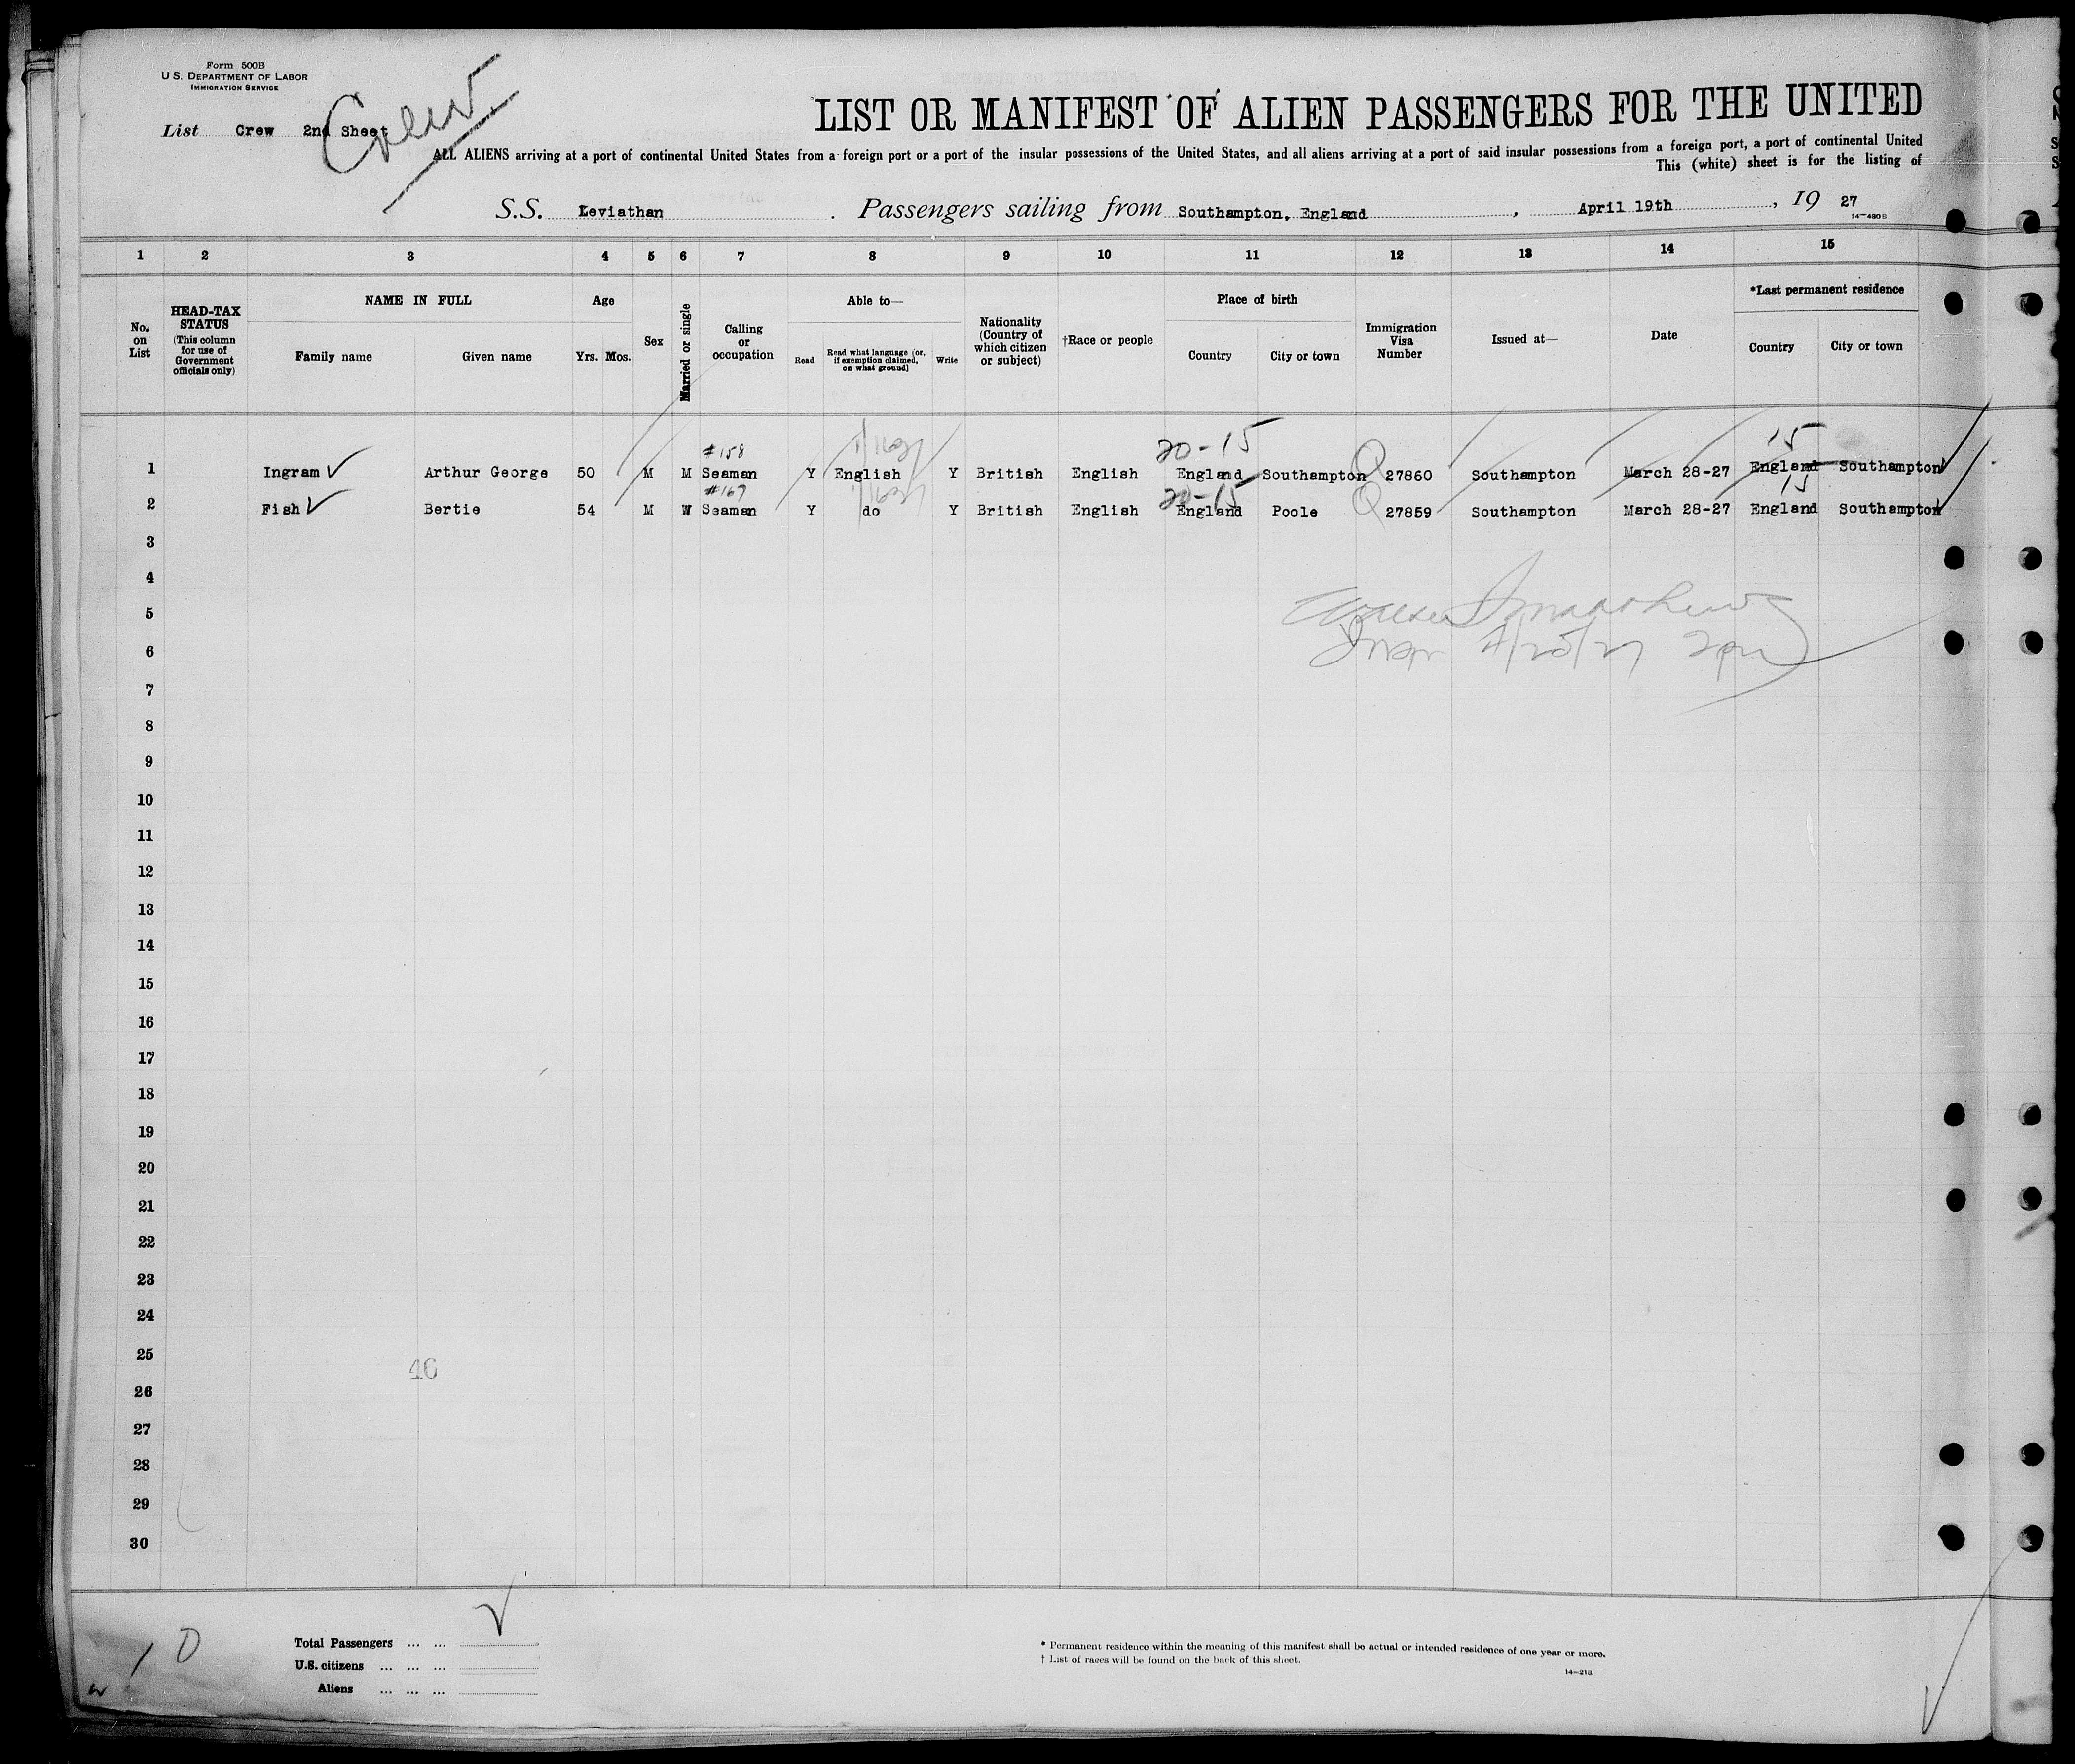 Form 500B
U.S. DEPARTMENT OF LABOR
IMMIGRATION SERVICE
List Crew 2nd Sheet
Crew
LIST OR MANIFEST OF ALIEN PASSENGERS FOR THE UNITED
ALL ALIENS arriving at a port of continental United States from a foreign port or a port of the insular possessions of the United States, and all aliens arriving at a port of said insular possessions from a foreign port, a port of continental United
This (white) sheet is for the listing of
S.S. Leviathan . Passengers sailing from Southampton, England , April 19th , 19 27
14-480B
1 2 3 4 5 6 7 8 9 10 11 12 13 14 15
No. on List
HEAD-TAX STATUS (This column for use of Government officials only)
NAME IN FULL
Family name Given name
Age
Yrs. Mos.
Sex
Married or single
Calling or occupation
Able to—
Read
Read what language (or, if exemption claimed, on what ground)
Write
Nationality (Country of which citizen or subject)
†Race or people
Place of birth
Country City or town
Immigration Visa Number
Issued at—
Date
*Last permanent residence
Country City or town
#158 20-15 15
1 Ingram Arthur George 50 M M Seaman Y English Y British English England Southampton Q 27860 Southampton March 28-27 England Southampton
#169 20-15 15
2 Fish Bertie 54 M W Seaman Y do Y British English England Poole Q 27859 Southampton March 28-27 England Southampton
3
4
5
6 Inspr 4/25/27 2pm
7
8
9
10
11
12
13
14
15
16
17
18
19
20
21
22
23
24
25
46
26
27
28
29
30
10
Total Passengers ... ...
U.S. citizens ... ... ...
Aliens ... ... ...
* Permanent residence within the meaning of this manifest shall be actual or intended residence of one year or more.
† List of races will be found on the back of this sheet.
14-213